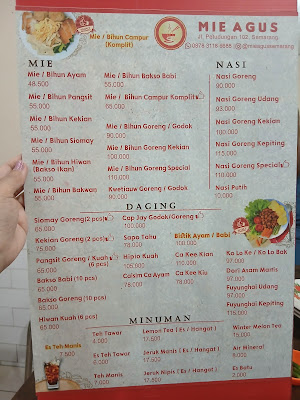 MIE AGUS
Jl. Petudungan 102, Semarang
@mieagussemarang
Mie / Bihun Campur
(Komplit)
MIE
Mie / Bihun Ayam
48.500
Mie / Bihun Pangsit
55.000
Mie / Bihun Kekian
55.000
Mie / Bihun Siomay
55.000
Mie / Bihun Hiwan
(Bakso Ikan)
55.000
Mie / Bihun Bakwan
Mie / Bihun Bakso Babi
55.000
Mie / Bihun Campur Komplit
65.000
Mie / Bihun Goreng / Godok
90.000
Mie / Bihun Goreng Kekian
100.000
Mie / Bihun Goreng Special
110.000
Kwetiauw Goreng / Godok
90.000
NASI
Nasi Goreng
90.000
Nasi Goreng Udang
93.000
Nasi Goreng Kekian
100.000
Nasi Goreng Kepiting
115.000
Nasi Goreng Special
110.000
Nasi Putih
10.000
DAGING
Siomay Goreng (2 pcs)
65.000
Kekian Goreng (2 pcs)
75.000
Pangsit Goreng / Kuah
65.000 (6 pcs)
Bakso Babi (10 pcs)
65.000
Bakso Goreng (10 pcs)
65.000
Hiwan Kuah (6 pcs)
65.000
Cap Jay Godok/Goreng
100.000
Sapo Tahu
Hipio Kuah
Caisim Ca Ayam
Bistik Ayam / Babi
100.000
Ca Kee Kian
110.000
Ca Kee Kiu
Ko Lo Ke / Ko Lo Bak
Dori Asam Manis
Fuyunghai Udang
Fuyunghai Kepiting
MINUMAN
Es Teh Manis
7.500
Teh Tawar
Es Teh Tawar
Teh Manis
7.000
Lemon Tea ( Es / Hangat )
17.500
Jeruk Manis ( Es / Hangat )
Jeruk Nipis ( Es / Hangat )
17.500
Winter Melon Tea
15.000
Air Mineral
8.000
Es Batu
2.000